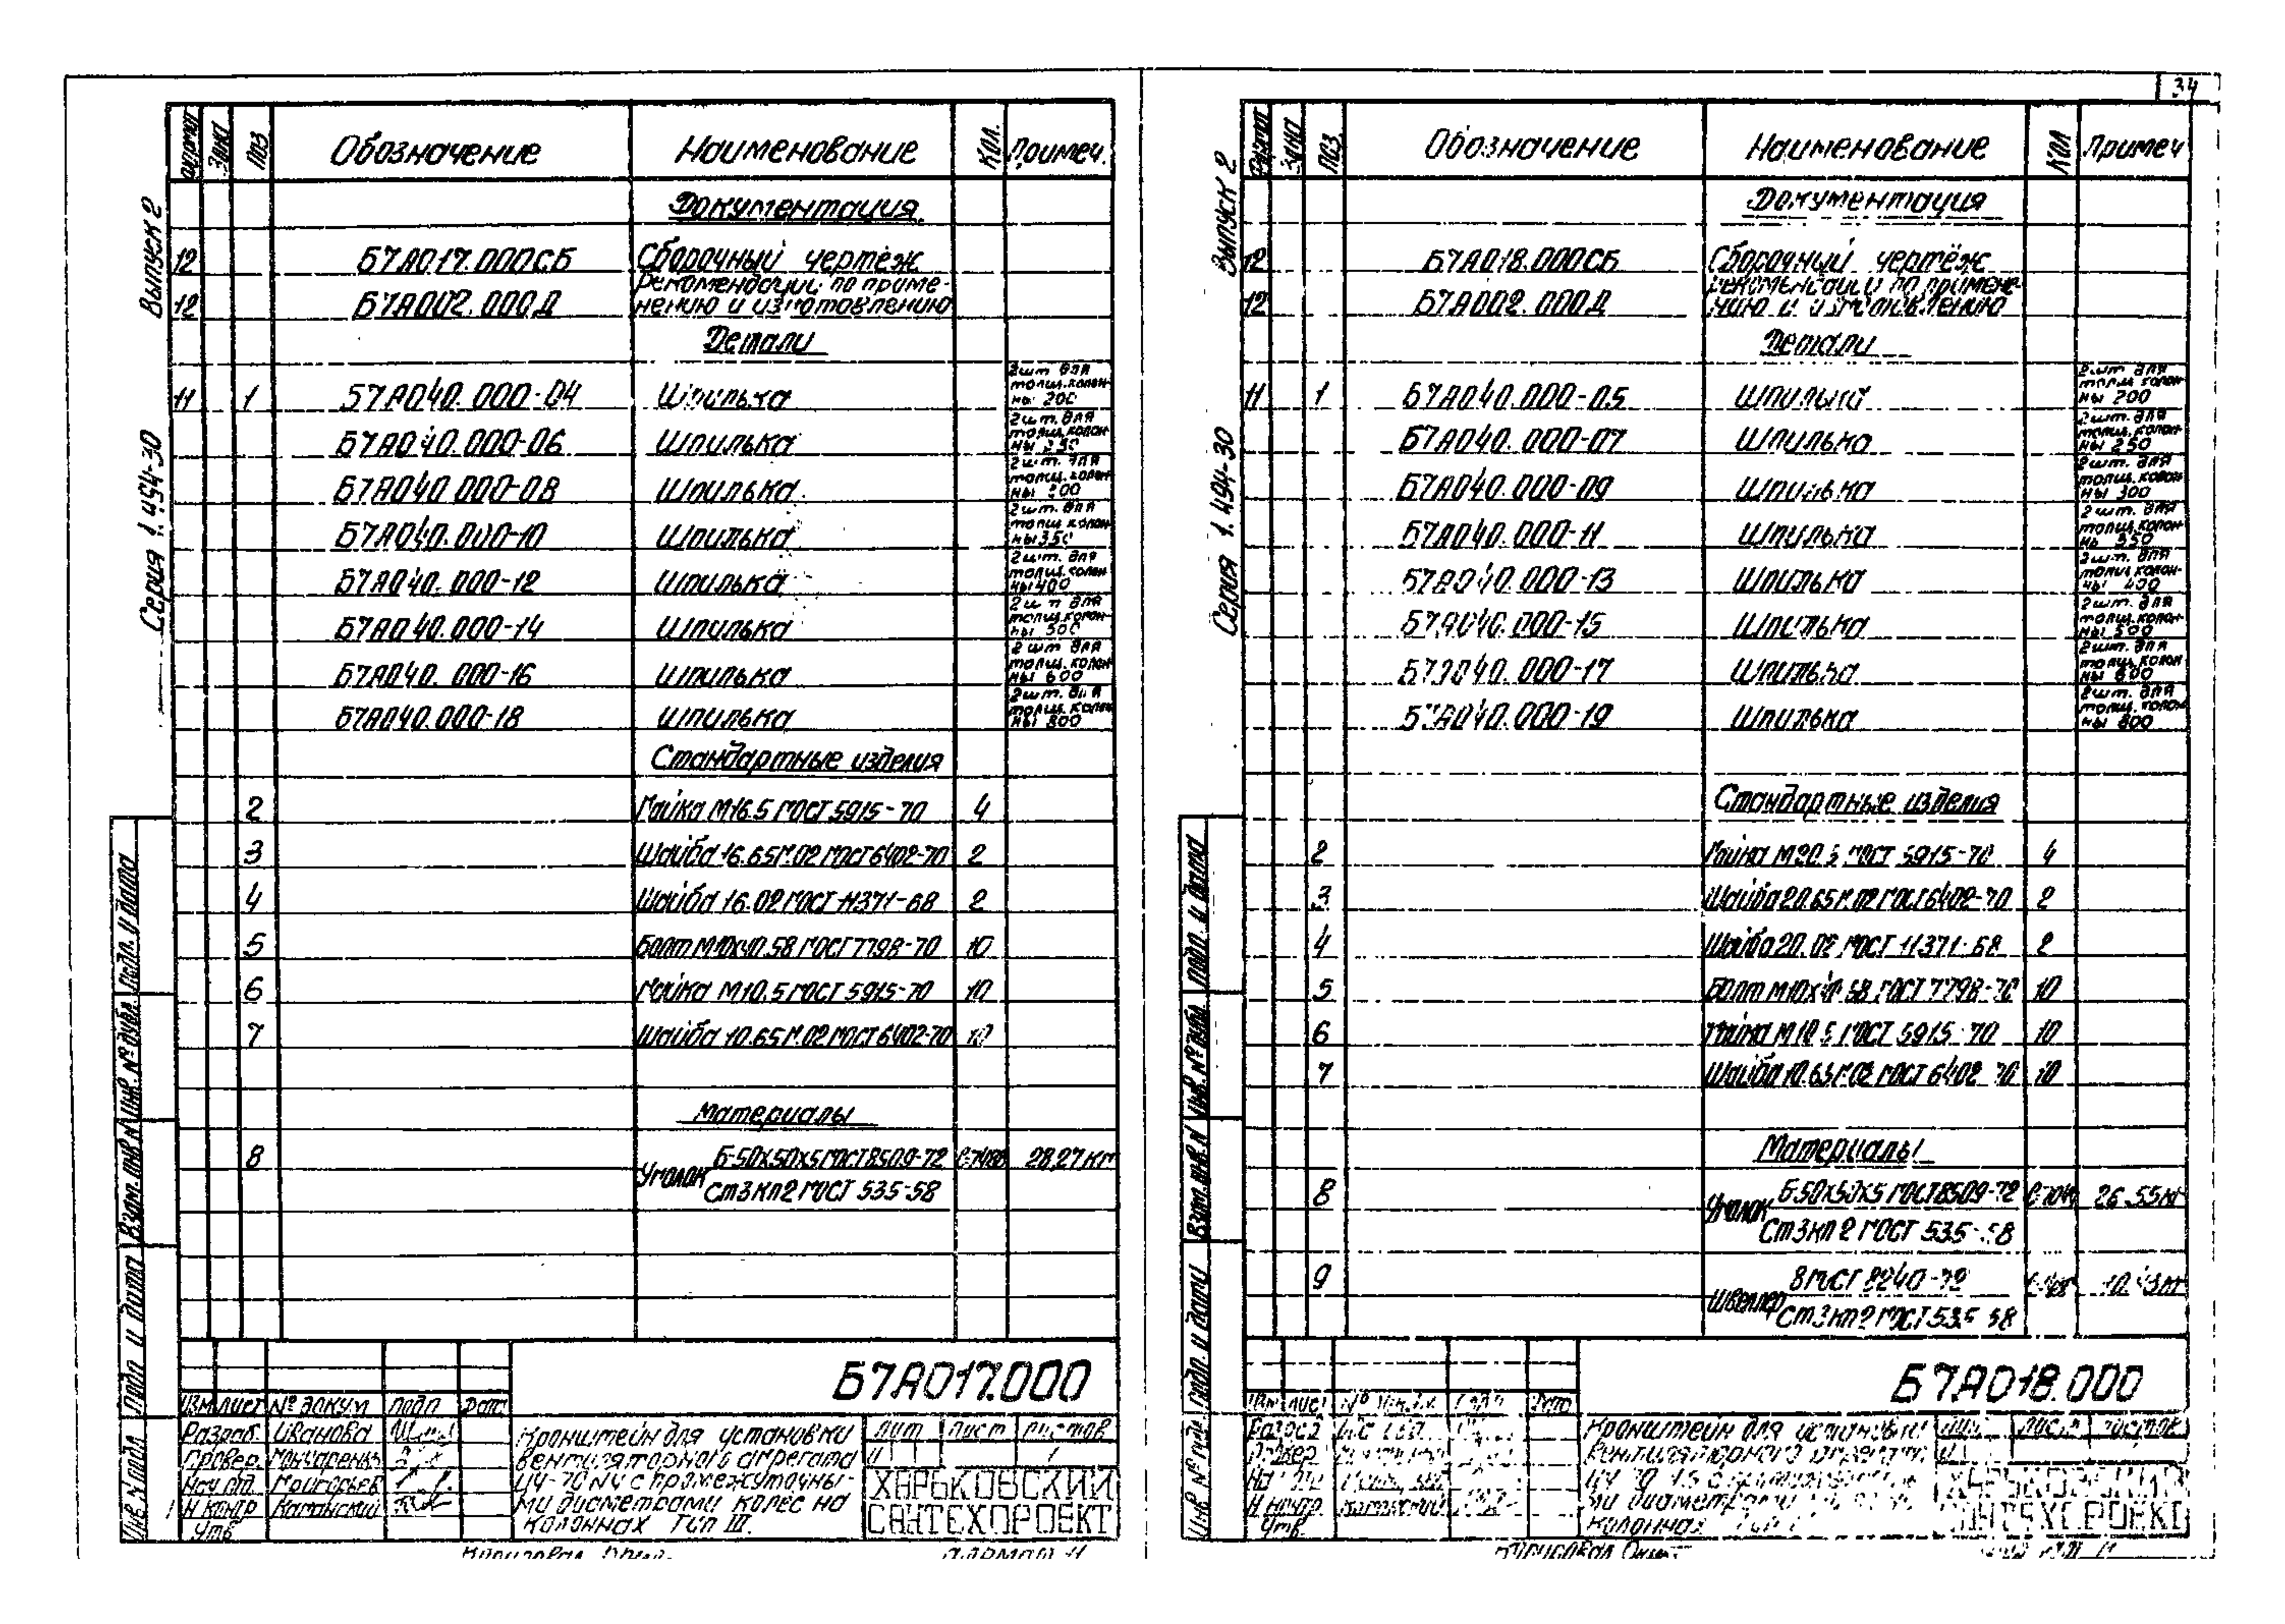 34
Серия 1.494-30 Выпуск 2
Формат Зона Поз Обозначение Наименование Кол. Примеч.
Документация
12 Б7А017.000СБ Сборочный чертёж
Рекомендации по приме-
12 Б7А002.000Д нению и изготовлению
Детали
11 1 Б7А040.000-04 Шпилька 2шт для толщ. колон- ны 200
Б7А040.000-06 Шпилька 2шт. для толщ. колон- ны 250
Б7А040.000-08 Шпилька 2шт. для толщ. колон- ны 300
Б7А040.000-10 Шпилька 2шт. для толщ. колон- ны 350
Б7А040.000-12 Шпилька 2шт. для толщ. колон- ны 400
Б7А040.000-14 Шпилька 2шт для толщ. колон- ны 500
Б7А040.000-16 Шпилька 2шт для толщ. колон- ны 600
Б7А040.000-18 Шпилька 2шт. для толщ. колон- ны 800
Стандартные изделия
2 Гайка М16.5 ГОСТ 5915-70 4
3 Шайба 16.65Г.02 ГОСТ 6402-70 2
4 Шайба 16.02 ГОСТ 11371-68 2
5 Болт М10х40.58 ГОСТ 7798-70 10
6 Гайка М10.5 ГОСТ 5915-70 10
7 Шайба 10.65Г.02 ГОСТ 6402-70 10
Материалы
8 Уголок Б-50х50х5 ГОСТ 8509-72 28,27 кг
Ст3кп2 ГОСТ 535-58
Б7А017.000
Изм Лист № докум Подп Дат
Разраб. Иванова
Провер. Гончаренко
Нач отд. Григорьев
Н контр Каганский
Утв.
Кронштейн для установки
вентиляторного агрегата
Ц4-70 N4 с промежуточны-
ми диаметрами колес на
колоннах Тип III.
Лит Лист Листов
И 1
ХАРЬКОВСКИЙ
САНТЕХПРОЕКТ
Инв. № подл Подп. и дата Взам. инв. № Инв. № дубл. Подп. и дата
Копировал Формат 11
Серия 1.494-30 Выпуск 2
Формат Зона Поз. Обозначение Наименование Кол Примеч
Документация
12 Б7А018.000СБ Сборочный чертёж
Рекомендации по примене-
12 Б7А002.000Д нию и изготовлению
Детали
11 1 Б7А040.000-05 Шпилька 2шт для толщ колон- ны 200
Б7А040.000-07 Шпилька 2шт. для толщ. колон- ны 250
Б7А040.000-09 Шпилька 2шт. для толщ. колон- ны 300
Б7А040.000-11 Шпилька 2шт. для толщ. колон- ны 350
Б7А040.000-13 Шпилька 2шт. для толщ колон- ны 400
Б7А040.000-15 Шпилька 2шт. для толщ. колон- ны 500
Б7А040.000-17 Шпилька 2шт. для толщ. колон- ны 600
Б7А040.000-19 Шпилька 2шт. для толщ. колон- ны 800
Стандартные изделия
2 Гайка М20.5 ГОСТ 5915-70 4
3 Шайба 20.65Г.02 ГОСТ 6402-70 2
4 Шайба 20.02 ГОСТ 11371-68 2
5 Болт М10х40.58 ГОСТ 7798-70 10
6 Гайка М10.5 ГОСТ 5915-70 10
7 Шайба 10.65Г.02 ГОСТ 6402-70 10
Материалы
8 Уголок Б-50х50х5 ГОСТ 8509-72 26.55 кг
Ст3кп2 ГОСТ 535-58
9 Швеллер 8 ГОСТ 8240-72
Ст3кп2 ГОСТ 535-58
Б7А018.000
Изм Лист № докум. Подп Дата
Разраб
Провер
Н контр Каганский
Утв.
Кронштейн для установки
вентиляторного агрегата
ми диаметрами
колоннах
Лит. Лист Листов
ХАРЬКОВСКИЙ
САНТЕХПРОЕКТ
Инв № подл. Подп. и дата Взам. инв. № Инв. № дубл. Подп. и дата
Копировал